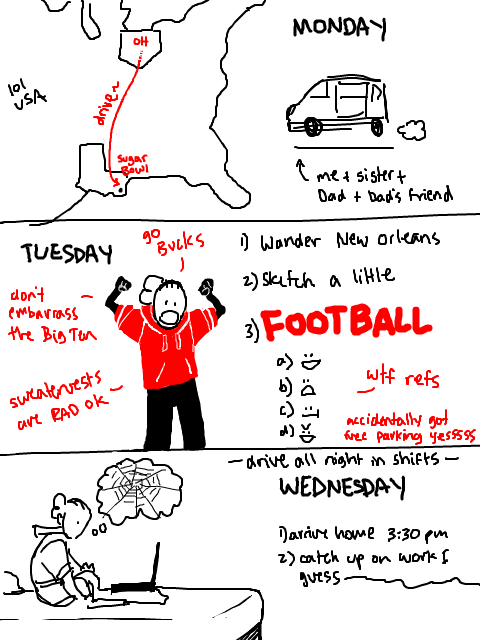 MONDAY
OH
lol
USA
drive~
sugar
Bowl
me + sister +
Dad + Dad's friend
TUESDAY
go
Bucks
don't
embarrass
the Big Ten
sweatervests
are RAD OK
1) Wander New Orleans
2) Sketch a little
3) FOOTBALL
a)
b)
c)
d)
wtf refs
accidentally got
free parking yessss
— drive all night in shifts —
WEDNESDAY
1) arrive home 3:30 pm
2) catch up on work I
guess